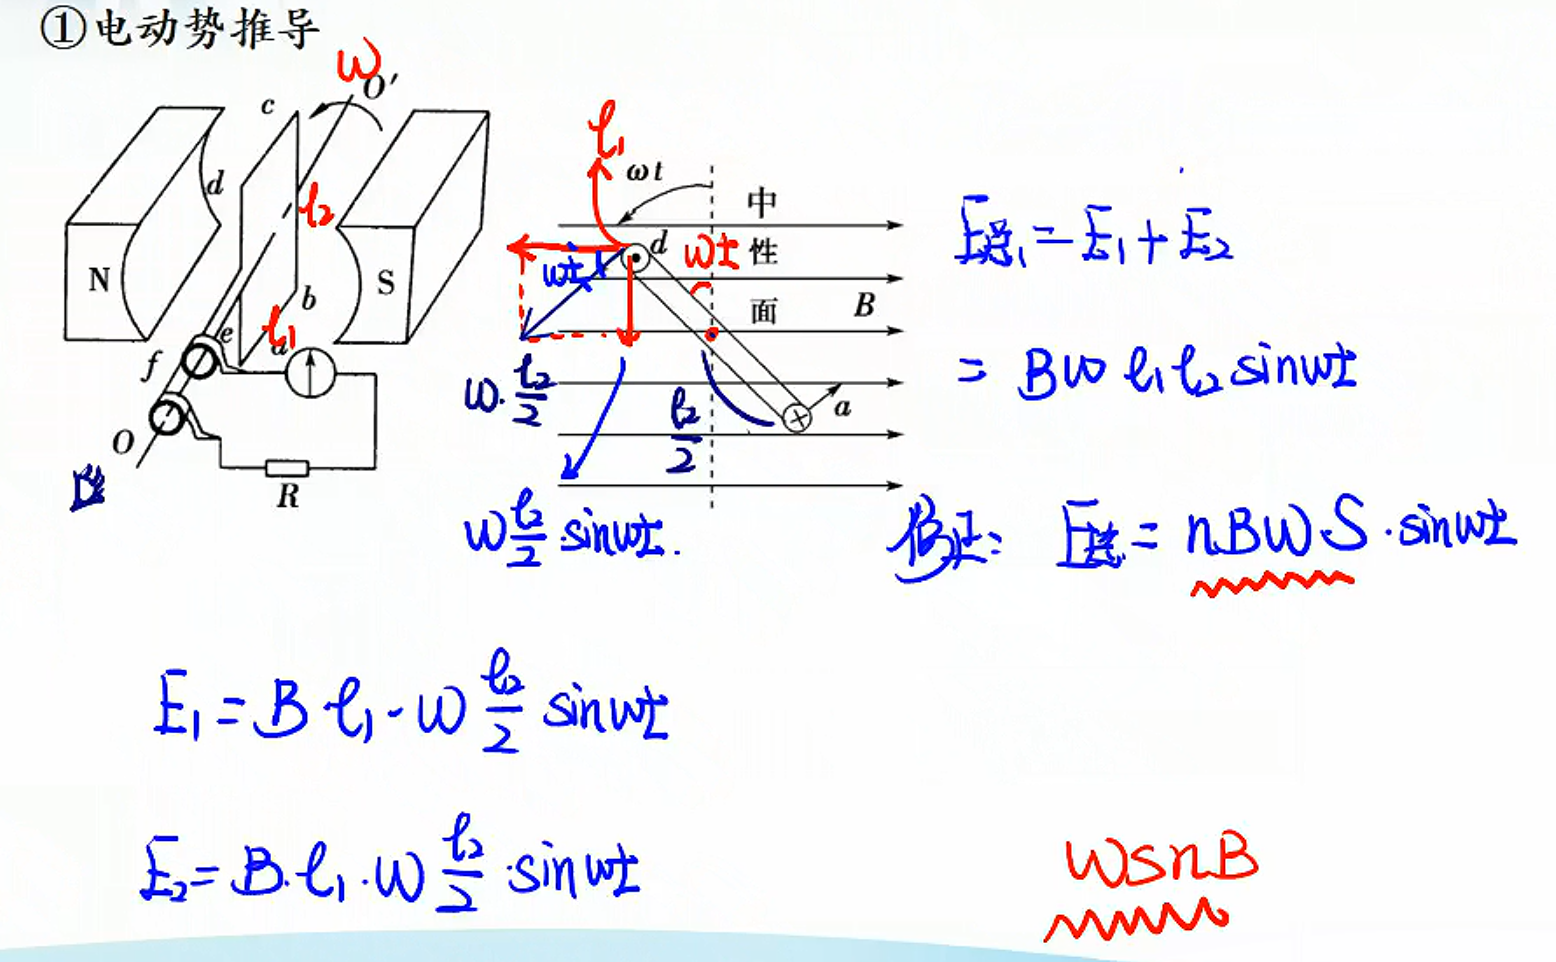 ①电动势推导
ω
O'
c
d
l₂
N
S
b
e
l₁
a
f
O
R
l₁
ωt
中
d
ωt
性
ωt
面
B
ω·l₂/2
l₂/2
a
ω l₂/2 ·sinωt.
E总₁=E₁+E₂
= Bω l₁l₂ sinωt
E总= nBωS·sinωt
E₁=B·l₁·ω l₂/2 sinωt
E₂=B·l₁·ω l₂/2 ·sinωt
ωsnB